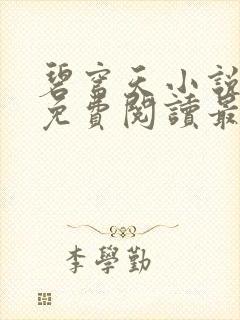 碧窗天小說
免費閱讀最
李學勤